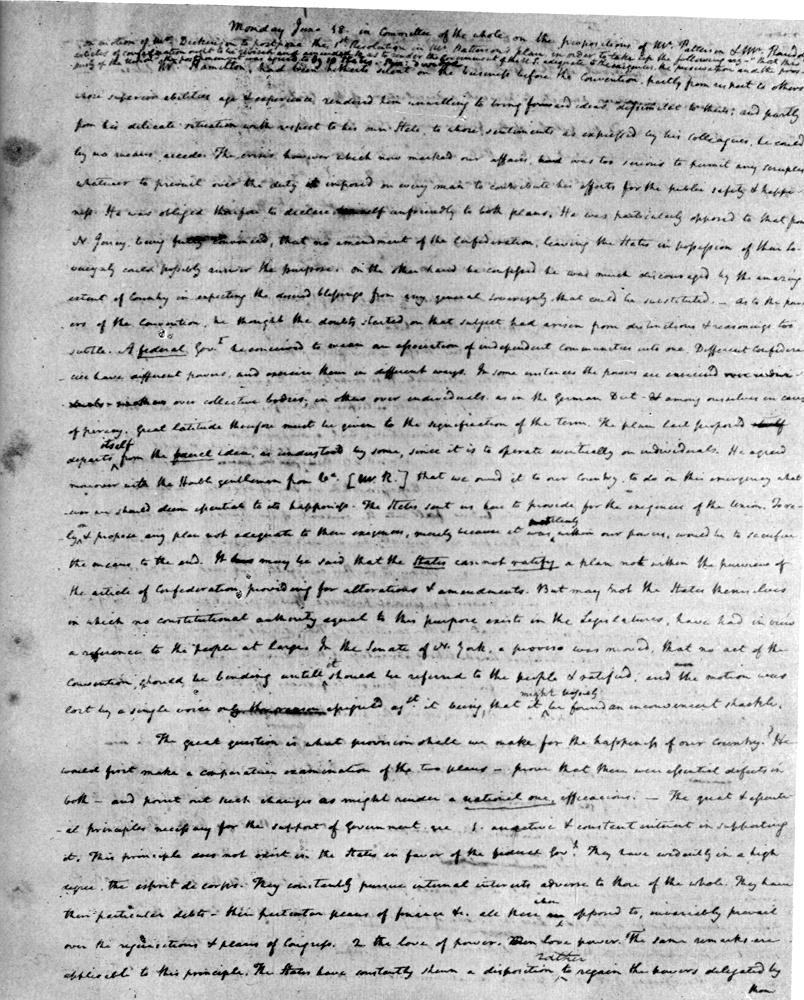 Monday June 18. in Committee of the whole on the propositions of Mr. Patterson & Mr. Randolph
on motion of Mr. Dickinson to postpone the 1st Resolution in Mr. Patterson's plan, in order to take up the following viz - "that the
articles of confederation ought to be revised and amended, so as to render the Government of the U.S. adequate to the exigencies, the preservation and the pros-
perity of the Union" the postponement was agreed to by 10 States,
Mr. Hamilton, had been hitherto silent on the business before the Convention, partly from respect to others
whose superior abilities age & experience rendered him unwilling to bring forward ideas dissimilar to theirs; and partly
from his delicate situation with respect to his own State, to whose sentiments as expressed by his Colleagues, he could
by no means accede. The crisis however which now marked our affairs, was too serious to permit any scruples
whatever to prevail over the duty imposed on every man to contribute his efforts for the public safety & happi-
ness. He was obliged therefore to declare himself unfriendly to both plans. He was particularly opposed to that from
N. Jersey, being fully convinced, that no amendment of the confederation, leaving the States in possession of their so-
vereignty could possibly answer the purpose. On the other hand he confessed he was much discouraged by the amazing
extent of Country in expecting the desired blessings from any general sovereignty that could be substituted. - As to the pow-
ers of the Convention, he thought the doubts started on that subject had arisen from distinctions & reasonings too
subtle. A federal Govt. he conceived to mean an association of independent Communities into one. Different Confedera-
cies have different powers, and exercise them in different ways. In some instances the powers are exercised
over collective bodies; in others over individuals. as in the German Diet - & among ourselves in cases
of piracy. Great latitude therefore must be given to the signification of the term. The plan last proposed
departs itself from the federal idea, as understood by some, since it is to operate eventually on individuals. He agreed
moreover with the Honble gentleman from Va. [Mr. R.] that we owed it to our Country, to do on this emergency what
ever we should deem essential to its happiness. The States sent us here to provide for the exigences of the Union. To re-
ly on & propose any plan not adequate to these exigences, merely because it was not clearly within our powers, would be to sacrifice
the means to the end. It may be said that the States can not ratify a plan not within the purview of
the article of Confederation providing for alterations & amendments. But may not the States themselves
in which no constitutional authority equal to this purpose exists in the Legislatures, have had in view
a reference to the people at large. In the Senate of N. York, a proviso was moved, that no act of the
Convention should be binding untill it should be referred to the people & ratified; and the motion was
lost by a single voice only the reason assigned agst. it being, that it might possibly be found an inconvenient shackle.
The great question is what provision shall we make for the happiness of our Country? He
would first make a comparative examination of the two plans - prove that there were essential defects in
both - and point out such changes as might render a national one, efficacious. - The great & essenti-
al principles necessary for the support of Government are 1. an active & constant interest in supporting
it. This principle does not exist in the States in favor of the federal Govt. They have evidently in a high
degree, the esprit de corps. They constantly pursue internal interests adverse to those of the whole. They have
their particular debts - their particular plans of finance &c. all these when opposed to, invariably prevail
over the requisitions & plans of Congress. 2 the love of power. Men love power. The same remarks are
applicable to this principle. The States have constantly shewn a disposition rather to regain the powers delegated by
them